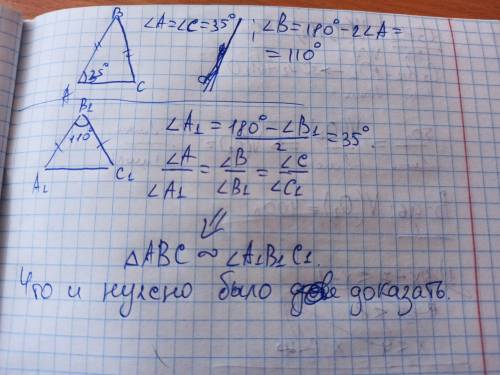 B
∠A=∠C=35° ; ∠B=180°-2∠A=
=110°
35°
A C
B1
110°
A1 C1
∠A1 = (180°-∠B1)/2 = 35°
∠A/∠A1 = ∠B/∠B1 = ∠C/∠C1
⇓
△ABC ~ ∠A1B1C1.
Что и нужно было доказать.